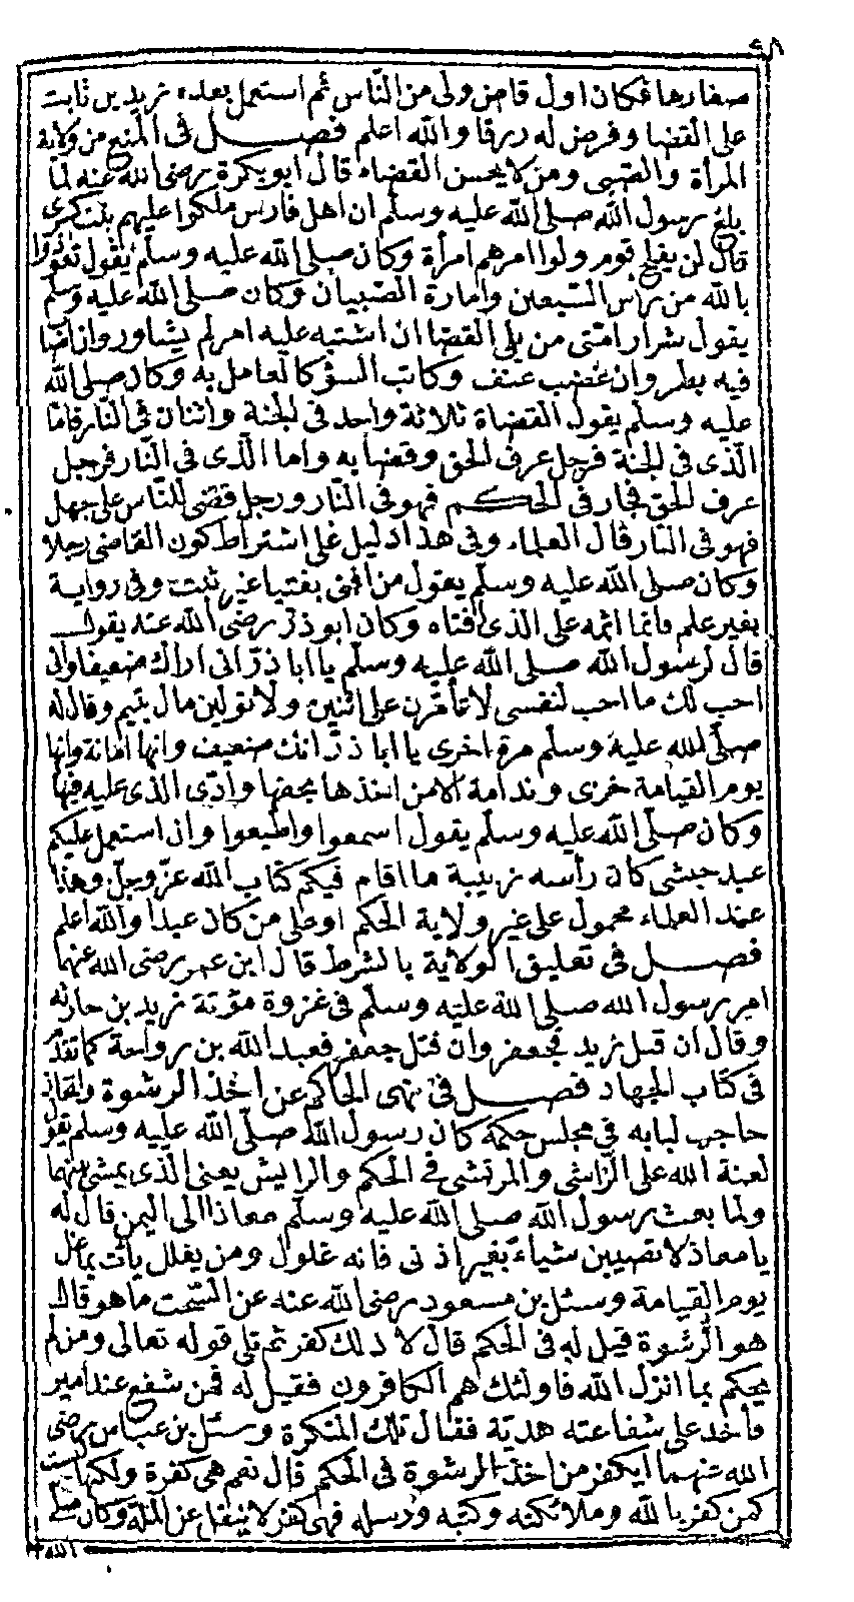 ٩٨
صغارها فكان اول قاض ولى من الناس ثم استعمل بعده زيد بن ثابت
على القضا وفرض له رزقا والله اعلم فصل فى المنع من ولاية
المرأة والصبى ومن لا يحسن القضاء قال ابو بكرة رضى الله عنه لما
بلغ رسول الله صلى الله عليه وسلم ان اهل فارس ملكوا عليهم بنت كسرى
قال لن يفلح قوم ولوا امرهم امرأة وكان صلى الله عليه وسلم يقول تعوذوا
بالله من رأس السبعين وامارة الصبيان وكان صلى الله عليه وسلم
يقول شرار امتى من يلى القضا ان اشتبه عليه امر لم يشاور وان اصاب
فيه بطر وان غضب عنف وكاتب السؤ كالعامل به وكان صلى الله
عليه وسلم يقول القضاة ثلاثة واحد فى الجنة واثنان فى النار فاما
الذى فى الجنة فرجل عرف الحق وقضا به واما الذى فى النار فرجل
عرف الحق فجار فى الحكم فهو فى النار ورجل قضى للناس على جهل
فهو فى النار قال العلماء وفى هذا دليل على اشتراط كون القاضى رجلا
وكان صلى الله عليه وسلم يقول من افتى بفتيا غير ثبت وفى رواية
بغير علم فانما اثمه على الذى افتاه وكان ابو ذر رضى الله عنه يقول
قال لى رسول الله صلى الله عليه وسلم يا ابا ذر انى اراك ضعيفا وانى
احب لك ما احب لنفسى لا تأمرن على اثنين ولا تولين مال يتيم وقال له
صلى الله عليه وسلم مرة اخرى يا ابا ذر انك ضعيف وانها امانة وانها
يوم القيامة خزى وندامة الا من اخذها بحقها وادى الذى عليه فيها
وكان صلى الله عليه وسلم يقول اسمعوا واطيعوا وان استعمل عليكم
عبد حبشى كان رأسه زبيبة ما اقام فيكم كتاب الله عز وجل وهذا
عند العلماء محمول على غير ولاية الحكم او على من كان عبدا والله اعلم
فصل فى تعليق الولاية بالشرط قال ابن عمر رضى الله عنهما
امر رسول الله صلى الله عليه وسلم فى غزوة مؤتة زيد بن حارثه
وقال ان قتل زيد فجعفر وان قتل جعفر فعبد الله بن رواحة كما تقدم
فى كتاب الجهاد فصل فى نهى الحاكم عن اخذ الرشوة واتخاذ
حاجب لبابه فى مجلس حكمه كان رسول الله صلى الله عليه وسلم يقول
لعنة الله على الراشى والمرتشى فى الحكم والرايش يعنى الذى يمشى بينهما
ولما بعث رسول الله صلى الله عليه وسلم معاذا الى اليمن قال له
يا معاذ لا تصيبن شياء بغير اذنى فانه غلول ومن يغلل يأت بما غل
يوم القيامة وسئل بن مسعود رضى الله عنه عن السحت ما هو قال
هو الرشوة قيل له فى الحكم قال لا ذلك كفر ثم تلى قوله تعالى ومن لم
يحكم بما انزل الله فاولئك هم الكافرون فقيل له فمن شفع عند امير
فأخذ على شفاعته هدية فقال تلك المنكرة وسئل بن عباس رضى
الله عنهما ايكفر من اخذ الرشوة فى الحكم قال نعم هى كفرة ولكنها ليست
كمن كفر بالله وملائكته وكتبه ورسله فهى كفر لا ينقل عن الملة وكان صلى
الله